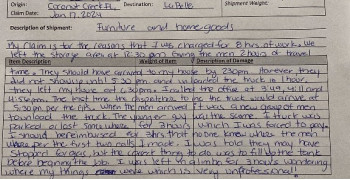 Origin: Coconut Creek FL Destination: LaBelle Shipment Weight:
Claim Date: Jan 17 2024
Description of Shipment: Furniture and home goods
My claim is for the reasons that I was charged for 8 hrs of work. We
left the storage area at 12:30 pm giving the men 2 hours of travel
Item Description Weight of Item Description of Damage
time. They should have arrived to my house by 230pm. However, they
did not show up until 5:30 pm and unloaded the truck in 1 hour
they left my home at 6:30pm. I called the office at 3:49, 4:11 and
4:54pm. The last time the dispatcher told me the truck would arrive at
5:30 per the GPS. When the men arrived it was a new group of men
to unload the truck. The younger guy was the same. The truck was
parked or lost somewhere for 3 hours which I was forced to pay.
I should be reimbursed for 3hrs that no one knew where the men
were per the first two calls I made. I was told they may have
stopped for gas, but the correct thing to do was to fill up the tank
before beginning the job. I was left in limbo for 3 hours wondering
where my things were which is very unprofessional.